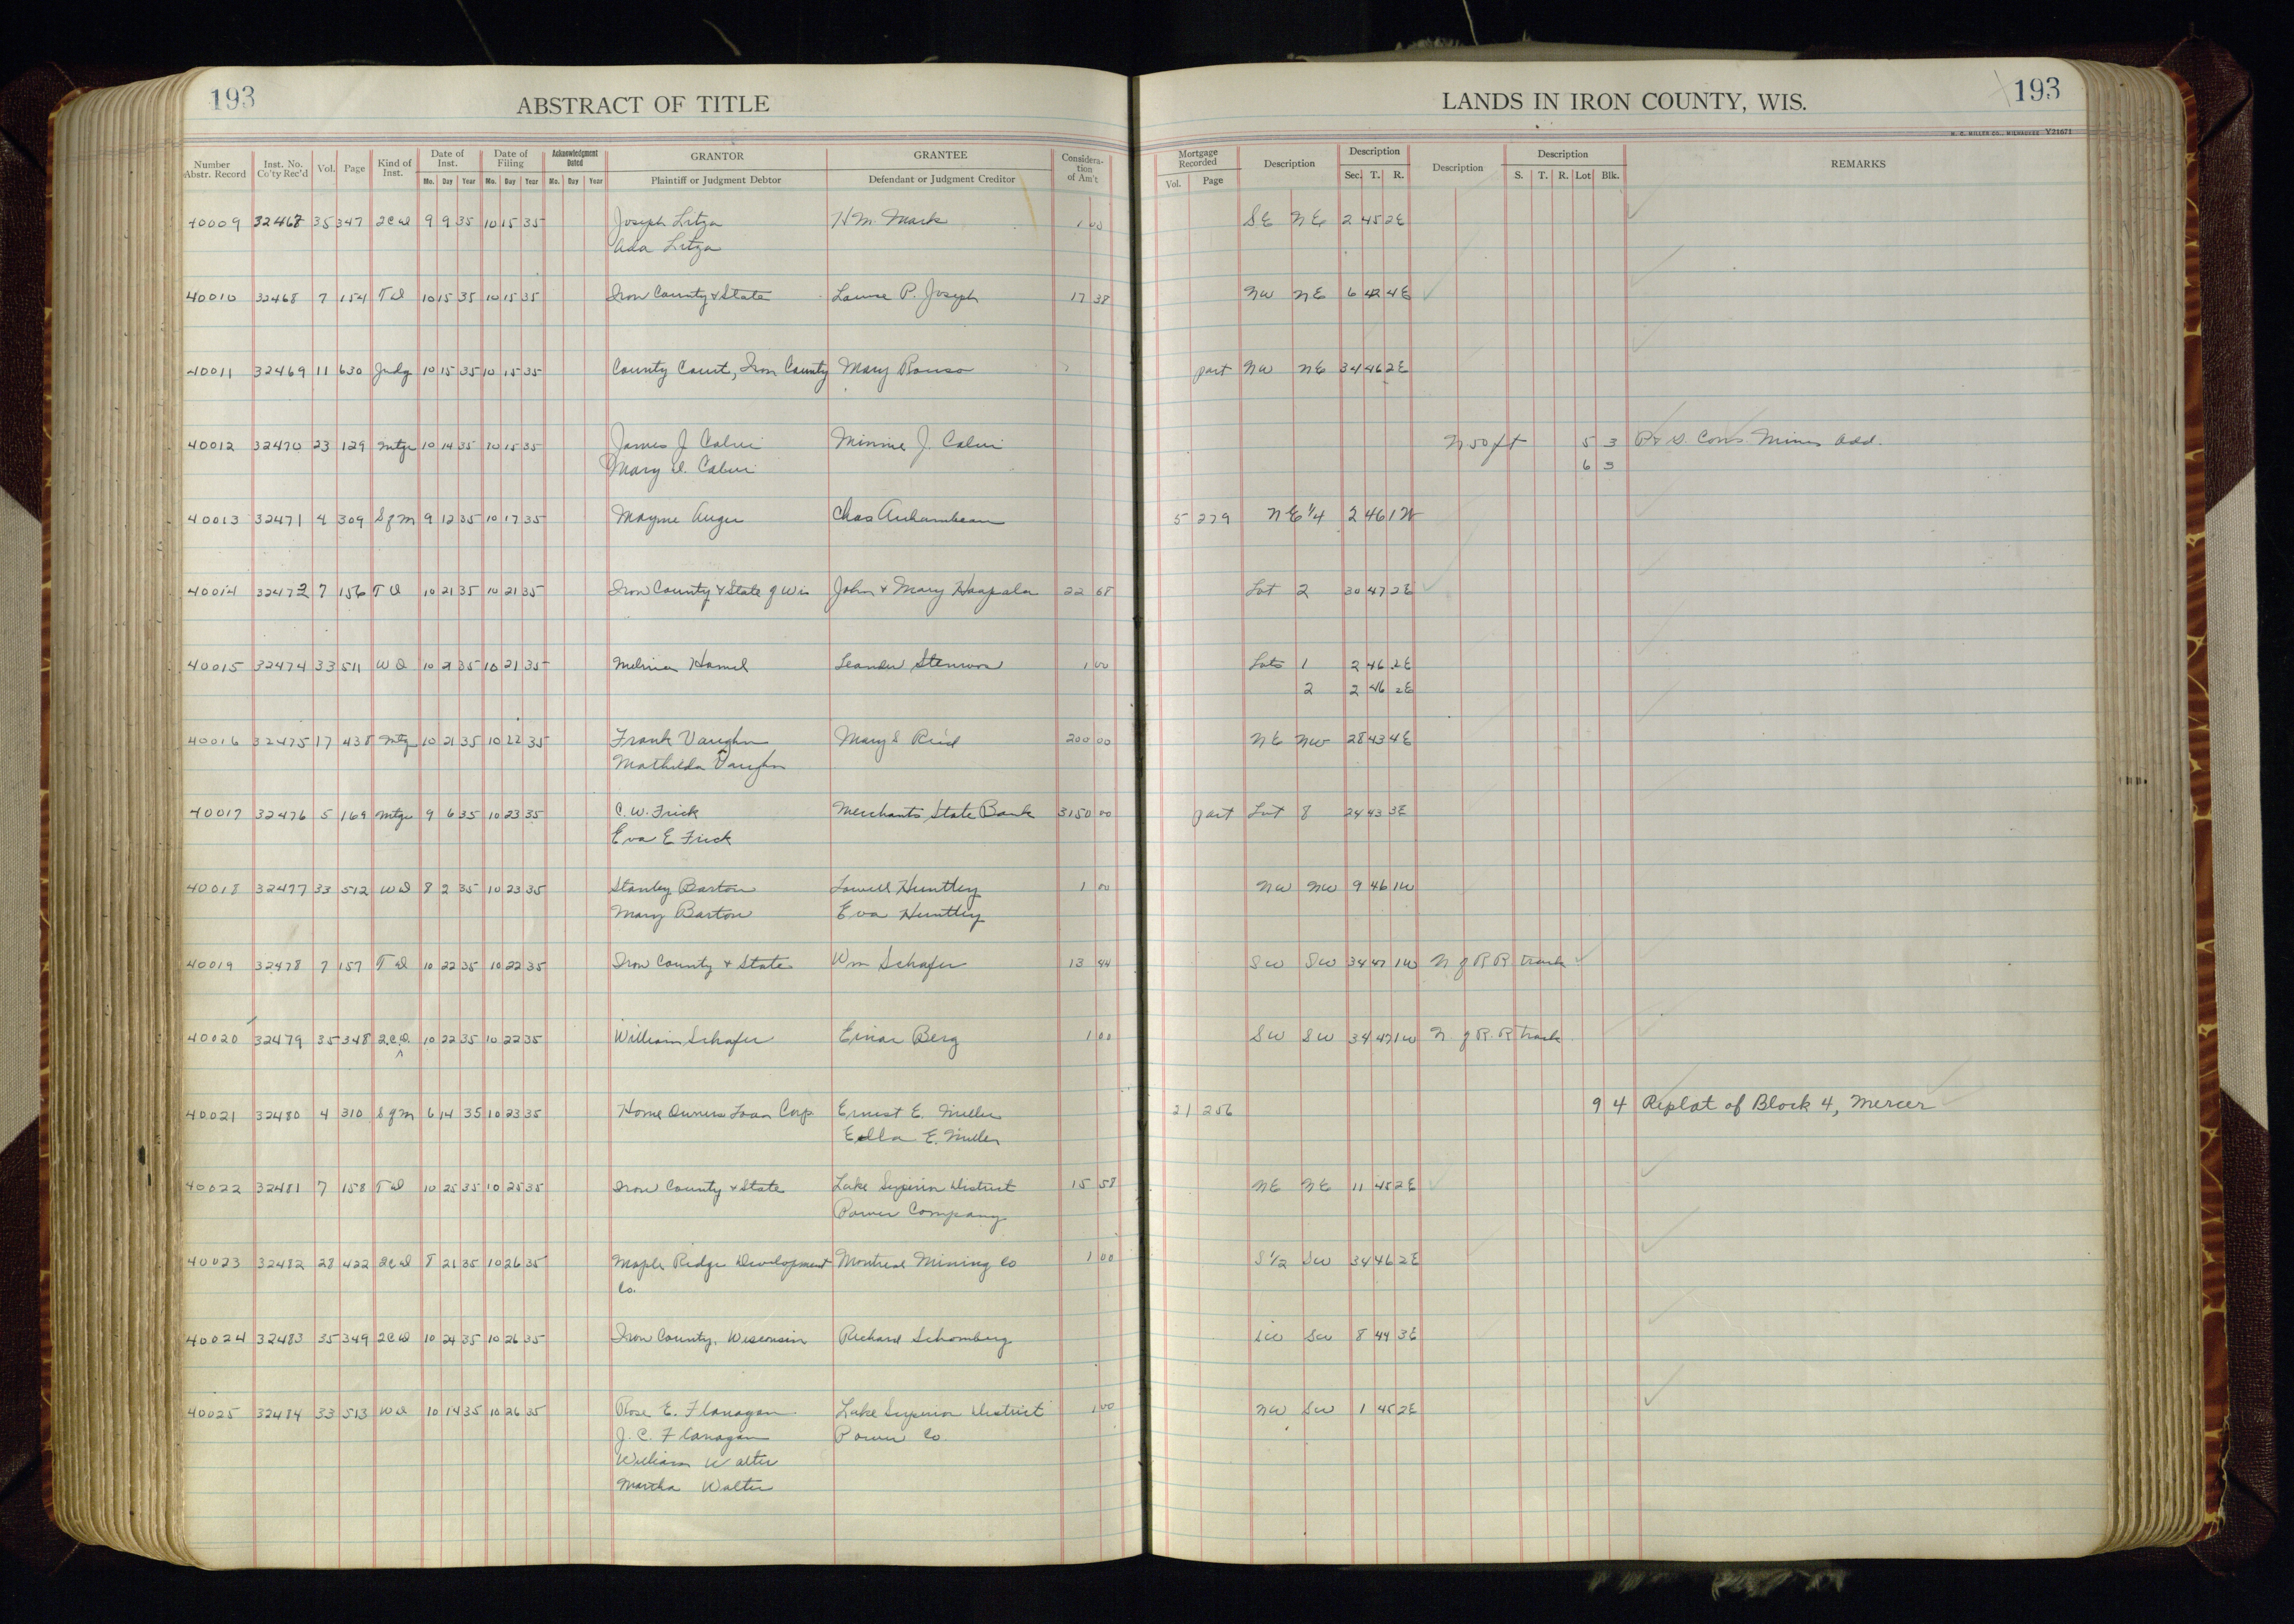 193
ABSTRACT OF TITLE
LANDS IN IRON COUNTY, WIS.
193
H. C. MILLER CO., MILWAUKEE Y21671
Number Abstr. Record Inst. No. Co'ty Rec'd Vol. Page Kind of Inst. Date of Inst. Mo. Day Year Date of Filing Mo. Day Year Acknowledgment Dated Mo. Day Year GRANTOR Plaintiff or Judgment Debtor GRANTEE Defendant or Judgment Creditor Consideration of Am't Mortgage Recorded Vol. Page Description Description Sec. T. R. Description Description S. T. R. Lot Blk. REMARKS
40009 32467 35 347 2CD 9 9 35 10 15 35 Joseph Litza H M Mark 1 00 SE NE 2 45 2E
Ada Litza
40010 32468 7 154 TD 10 15 35 10 15 35 Iron County & State Louise P. Joseph 17 38 NW NE 6 42 4E
40011 32469 11 630 Judg 10 15 35 10 15 35 County Court, Iron County Mary part NW NE 34 46 2E
40012 32470 23 129 Mtge 10 14 35 10 15 35 James J Minnie J. N 50 ft 5 3 Cons Mines Add.
Mary D. 6 3
40013 32471 4 309 S of M 9 12 35 10 17 35 Mayme Auger Chas Archambeau 5 279 NE 1/4 2 46 1W
40014 32472 7 156 TD 10 21 35 10 21 35 Iron County & State of Wis John & Mary Haapala 22 68 Lot 2 30 47 2E
40015 32474 33 511 WD 10 21 35 10 21 35 Melvina Hamel Leander Stenvora 1 00 Lots 1 2 46 2E
2 2 46 2E
40016 32475 17 438 Mtg 10 21 35 10 22 35 Frank Vaughn Mary S Reid 200 00 NE NW 28 43 4E
Mathilda Vaughn
40017 32476 5 169 Mtge 9 6 35 10 23 35 C. W. Frick Merchants State Bank 3150 00 part Lot 8 24 43 3E
Eva E Frick
40018 32477 33 512 WD 8 2 35 10 23 35 Stanley Barton Lowell Huntley 1 00 NW NW 9 46 1W
Mary Barton Eva Huntley
40019 32478 7 157 TD 10 22 35 10 22 35 Iron County & State Wm Schafer 13 44 SW SW 34 47 1W N of R R track
40020 32479 35 348 2C.D. 10 22 35 10 22 35 William Schafer Einar Berg 1 00 SW SW 34 47 1W N. of R. R track
40021 32480 4 310 S of M 6 14 35 10 23 35 Home Owners Loan Corp. Ernest E. Miller 21 256 9 4 Replat of Block 4, Mercer
Ella E. Miller
40022 32481 7 158 TD 10 25 35 10 25 35 Iron County & State Lake Superior District 15 58 NE NE 11 45 2E
Power Company
40023 32482 28 422 2CD 8 21 35 10 26 35 Maple Ridge Development Montreal Mining Co 1 00 S 1/2 SW 34 46 2E
Co.
40024 32483 35 349 2CD 10 24 35 10 26 35 Iron County, Wisconsin Richard Schomberg SW SW 8 44 3E
40025 32484 33 513 WD 10 14 35 10 26 35 Rose E. Flanagan Lake Superior District 1 00 NW SW 1 45 2E
J. C. Flanagan Power Co
William Walter
Martha Walter